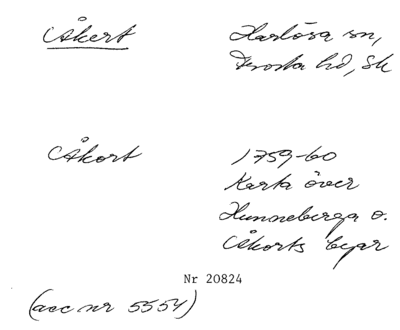 Åkert
Harlösa sn,
Frosta hd, Sk
Åkort
1759-60
Karta över
Hunneberga o.
Åkorts byar
Nr 20824
(acc nr 5554)